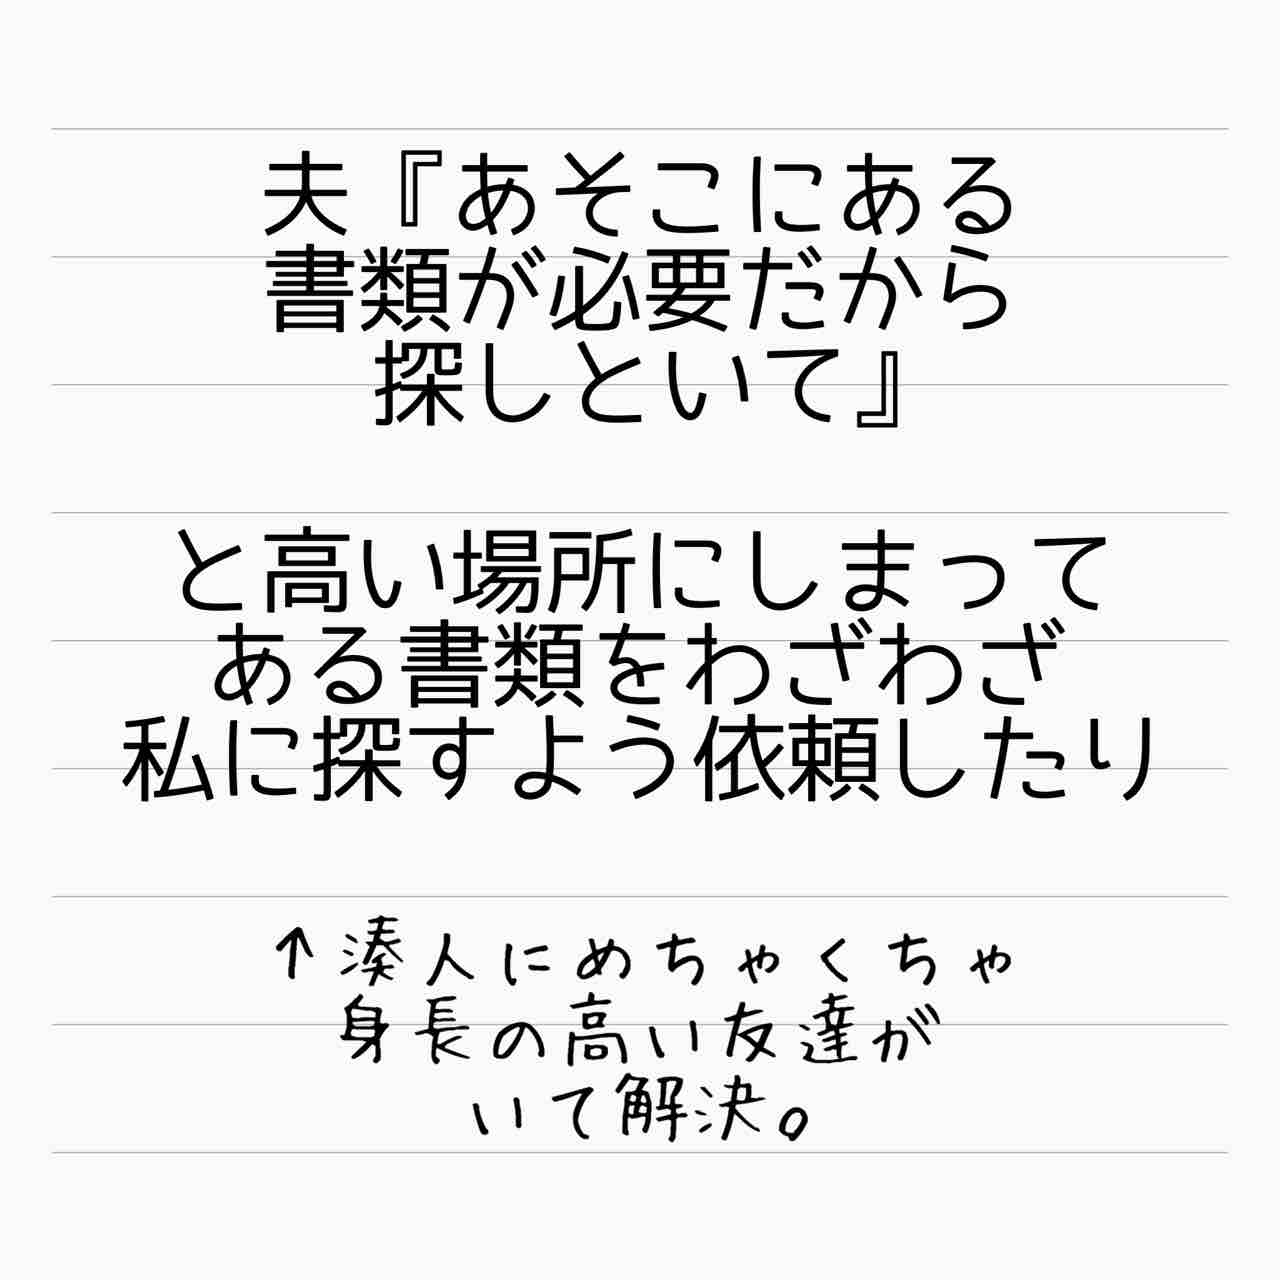 夫『あそこにある
書類が必要だから
探しといて』
と高い場所にしまって
ある書類をわざわざ
私に探すよう依頼したり
↑湊人にめちゃくちゃ
身長の高い友達が
いて解決。